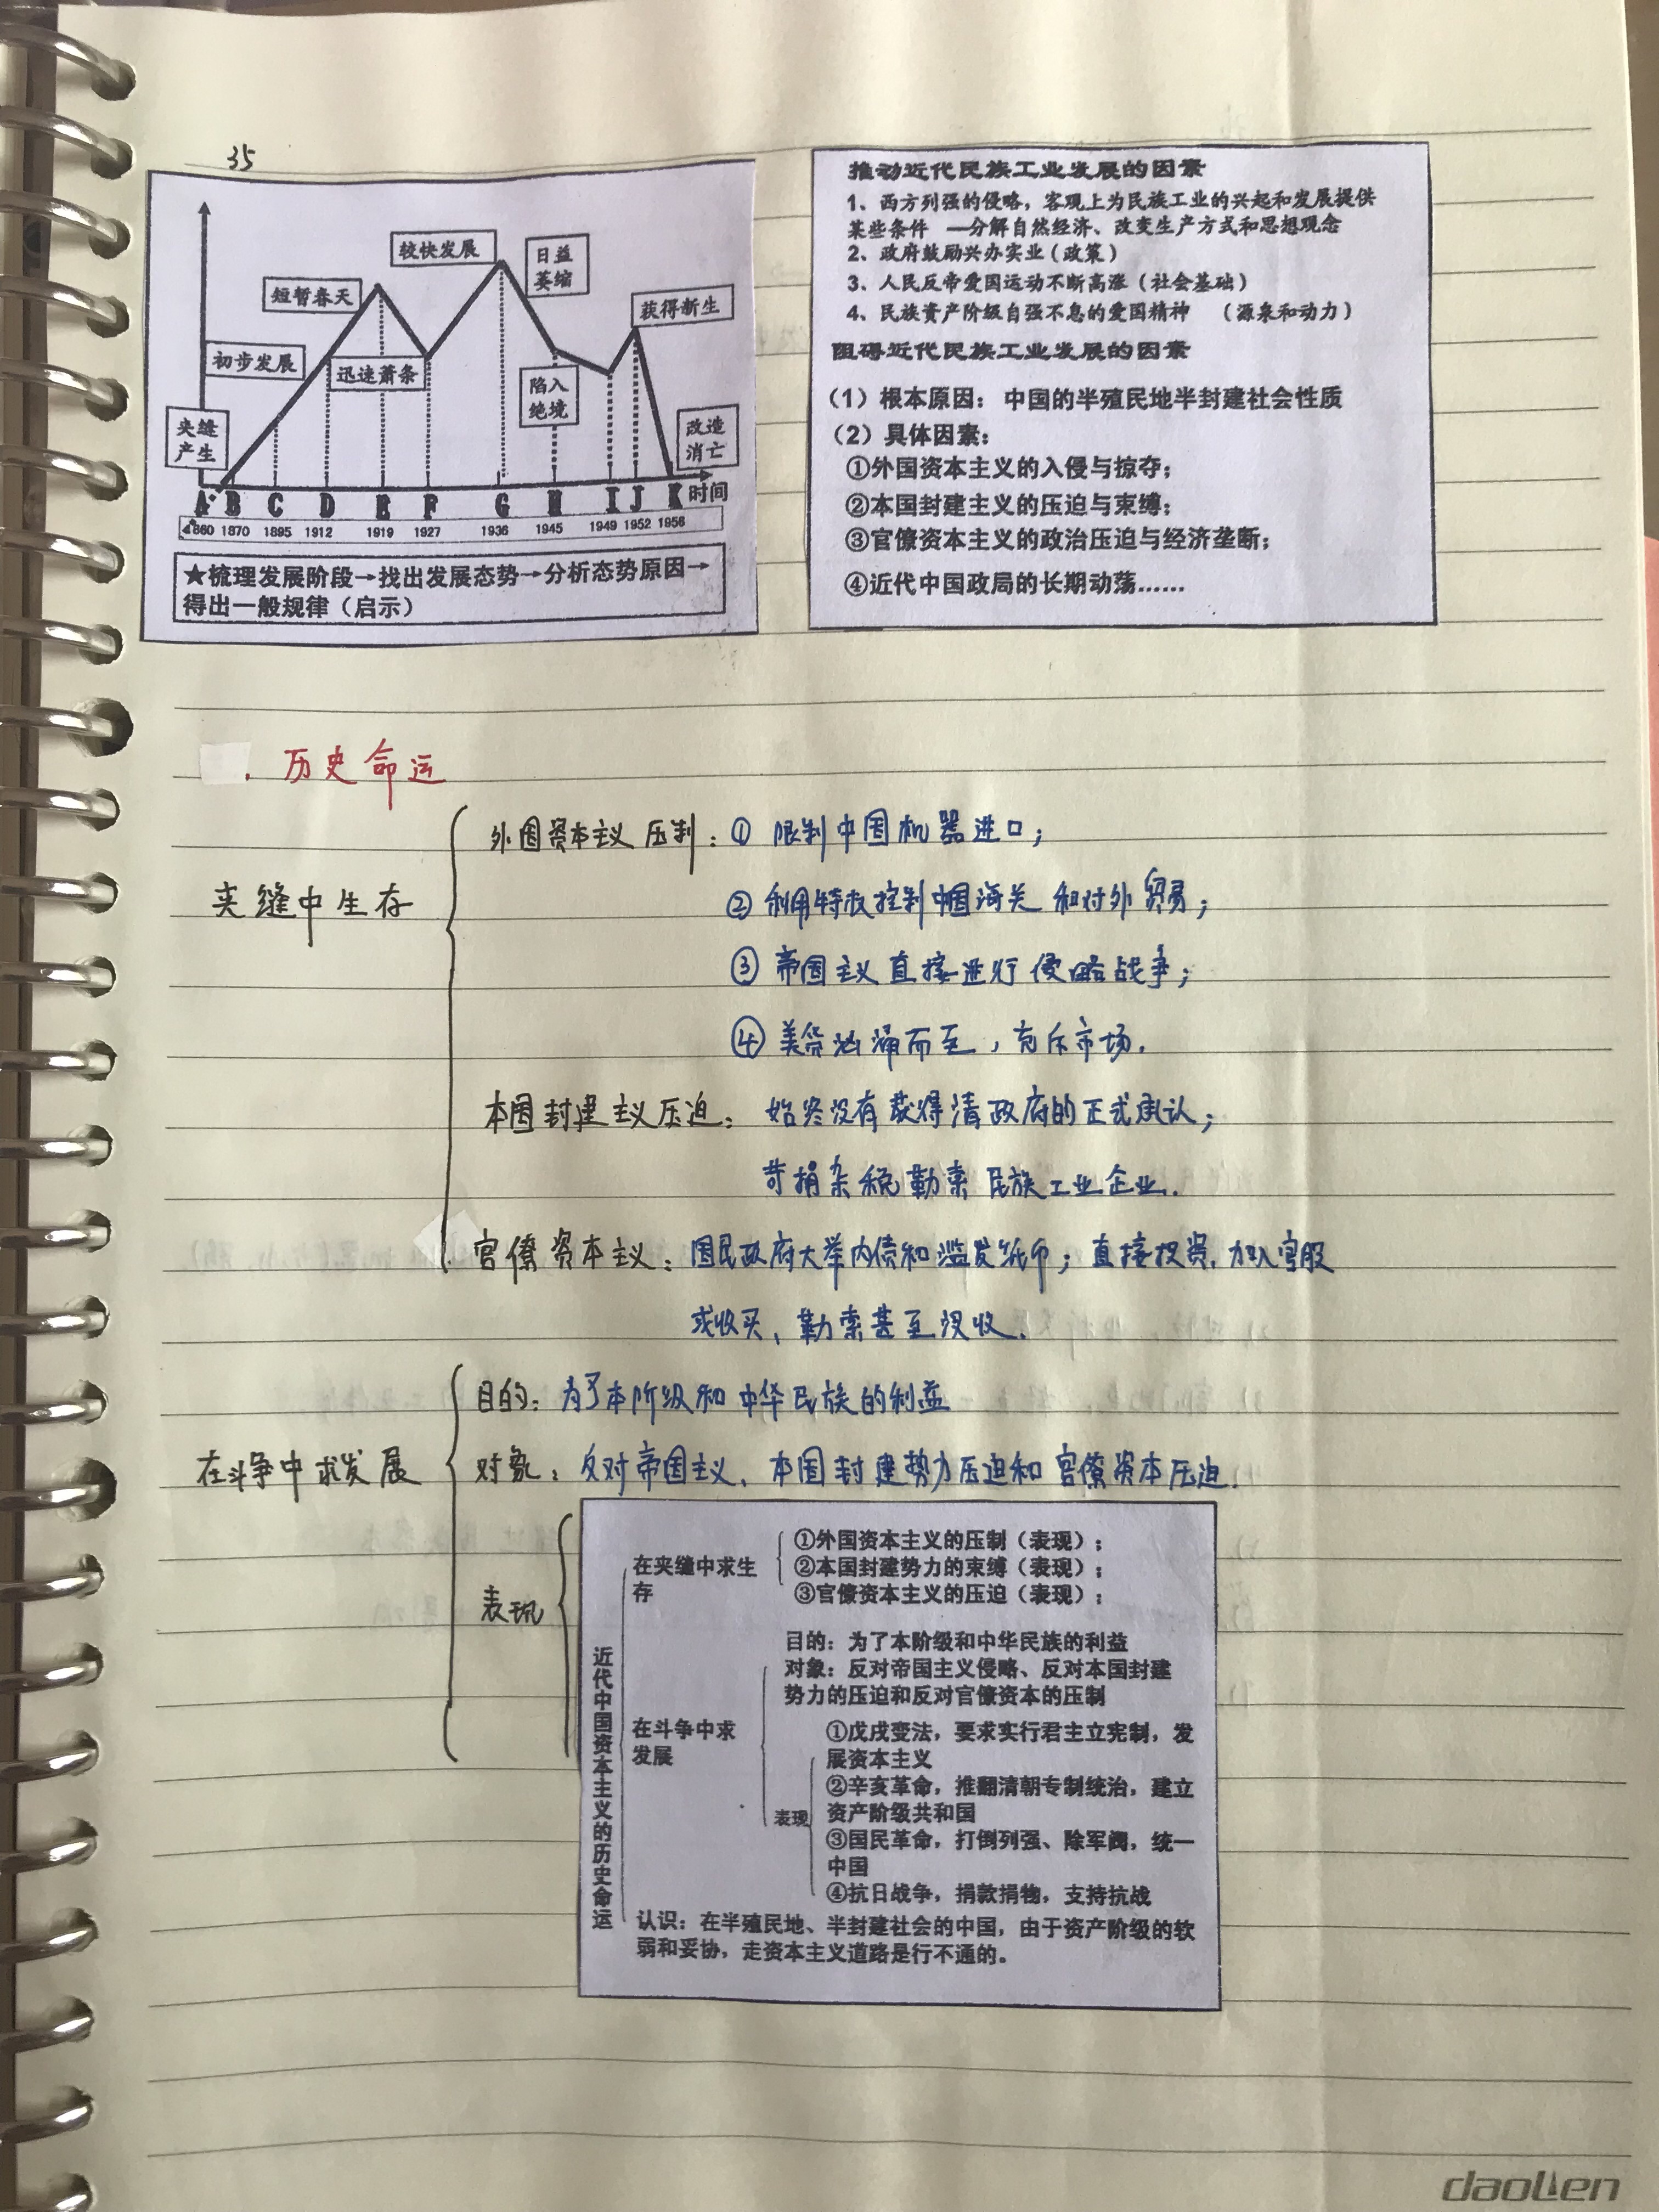 35
较快发展
日益
萎缩
短暂春天
获得新生
初步发展
迅速萧条
陷入
绝境
夹缝
产生
改造
消亡
A B C D E F G H I J K 时间
1860 1870 1895 1912 1919 1927 1936 1945 1949 1952 1956
★梳理发展阶段→找出发展态势→分析态势原因→
得出一般规律（启示）
推动近代民族工业发展的因素
1、西方列强的侵略，客观上为民族工业的兴起和发展提供
某些条件 —分解自然经济、改变生产方式和思想观念
2、政府鼓励兴办实业（政策）
3、人民反帝爱国运动不断高涨（社会基础）
4、民族资产阶级自强不息的爱国精神 （源泉和动力）
阻碍近代民族工业发展的因素
（1）根本原因：中国的半殖民地半封建社会性质
（2）具体因素：
①外国资本主义的入侵与掠夺；
②本国封建主义的压迫与束缚；
③官僚资本主义的政治压迫与经济垄断；
④近代中国政局的长期动荡……
. 历史命运
夹缝中生存
外国资本主义压制：① 限制中国机器进口；
② 利用特权控制中国海关和对外贸易；
③ 帝国主义直接进行侵略战争；
④ 美货汹涌而至，充斥市场.
本国封建主义压迫：始终没有获得清政府的正式承认；
苛捐杂税勒索民族工业企业.
官僚资本主义：国民政府大举内债和滥发纸币；直接投资、加入官股
或收买、勒索甚至没收.
在斗争中求发展
目的：为了本阶级和中华民族的利益
对象：反对帝国主义、本国封建势力压迫和官僚资本压迫.
表现
近代中国资本主义的历史命运
在夹缝中求生
存
①外国资本主义的压制（表现）；
②本国封建势力的束缚（表现）；
③官僚资本主义的压迫（表现）；
在斗争中求
发展
目的：为了本阶级和中华民族的利益
对象：反对帝国主义侵略、反对本国封建
势力的压迫和反对官僚资本的压制
表现
①戊戌变法，要求实行君主立宪制，发
展资本主义
②辛亥革命，推翻清朝专制统治，建立
资产阶级共和国
③国民革命，打倒列强、除军阀，统一
中国
④抗日战争，捐款捐物，支持抗战
认识：在半殖民地、半封建社会的中国，由于资产阶级的软
弱和妥协，走资本主义道路是行不通的。
daolien